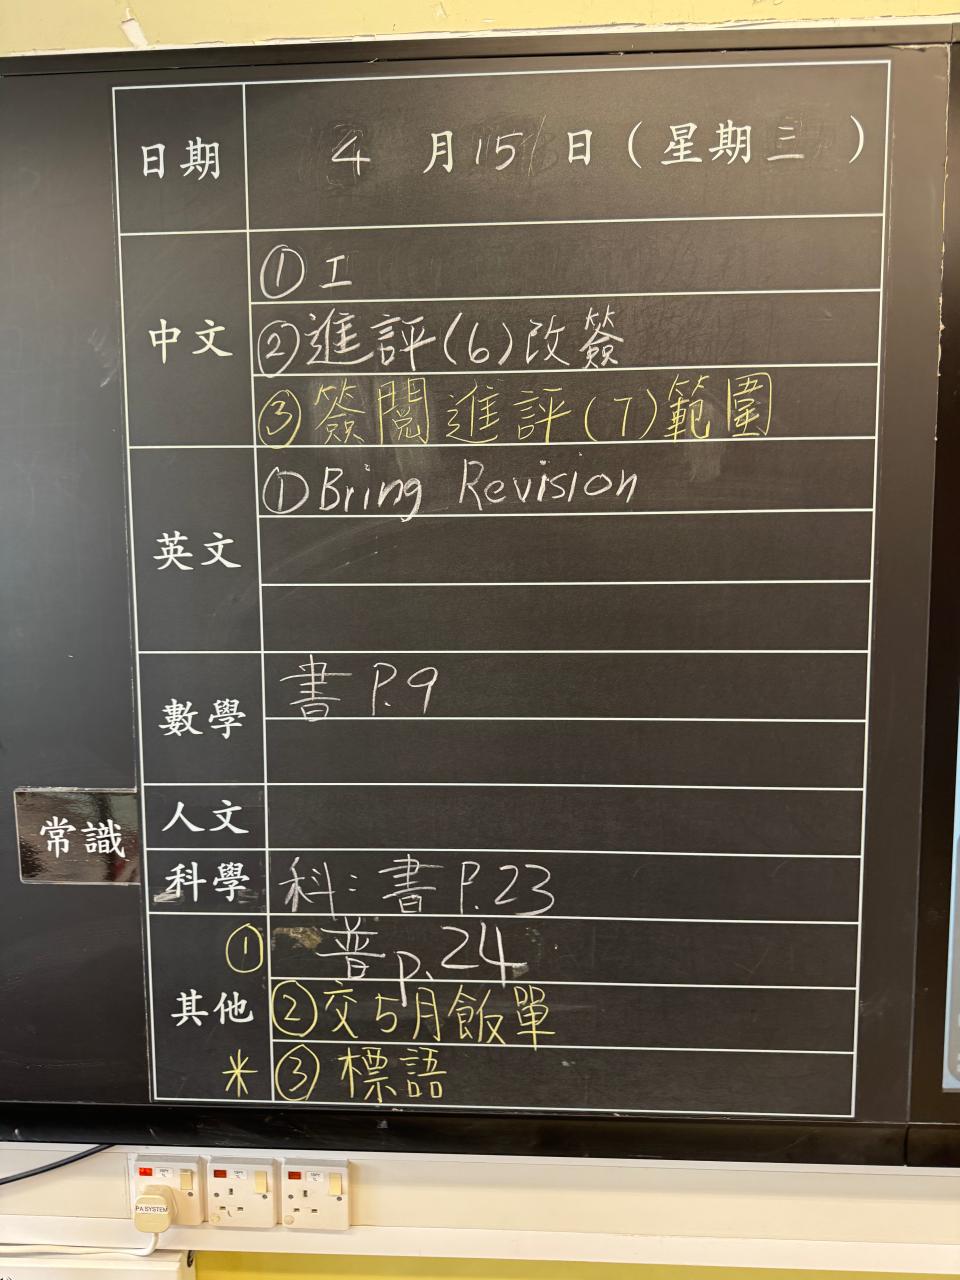 日期 4月15日（星期三）
中文
①工
②進評(6)改簽
③簽閱進評(7)範圍
英文
①Bring Revision
數學
書 P.9
人文
常識
科學
科：書 P.23
其他
① 普 P.24
②交5月飯單
* ③標語
PA SYSTEM